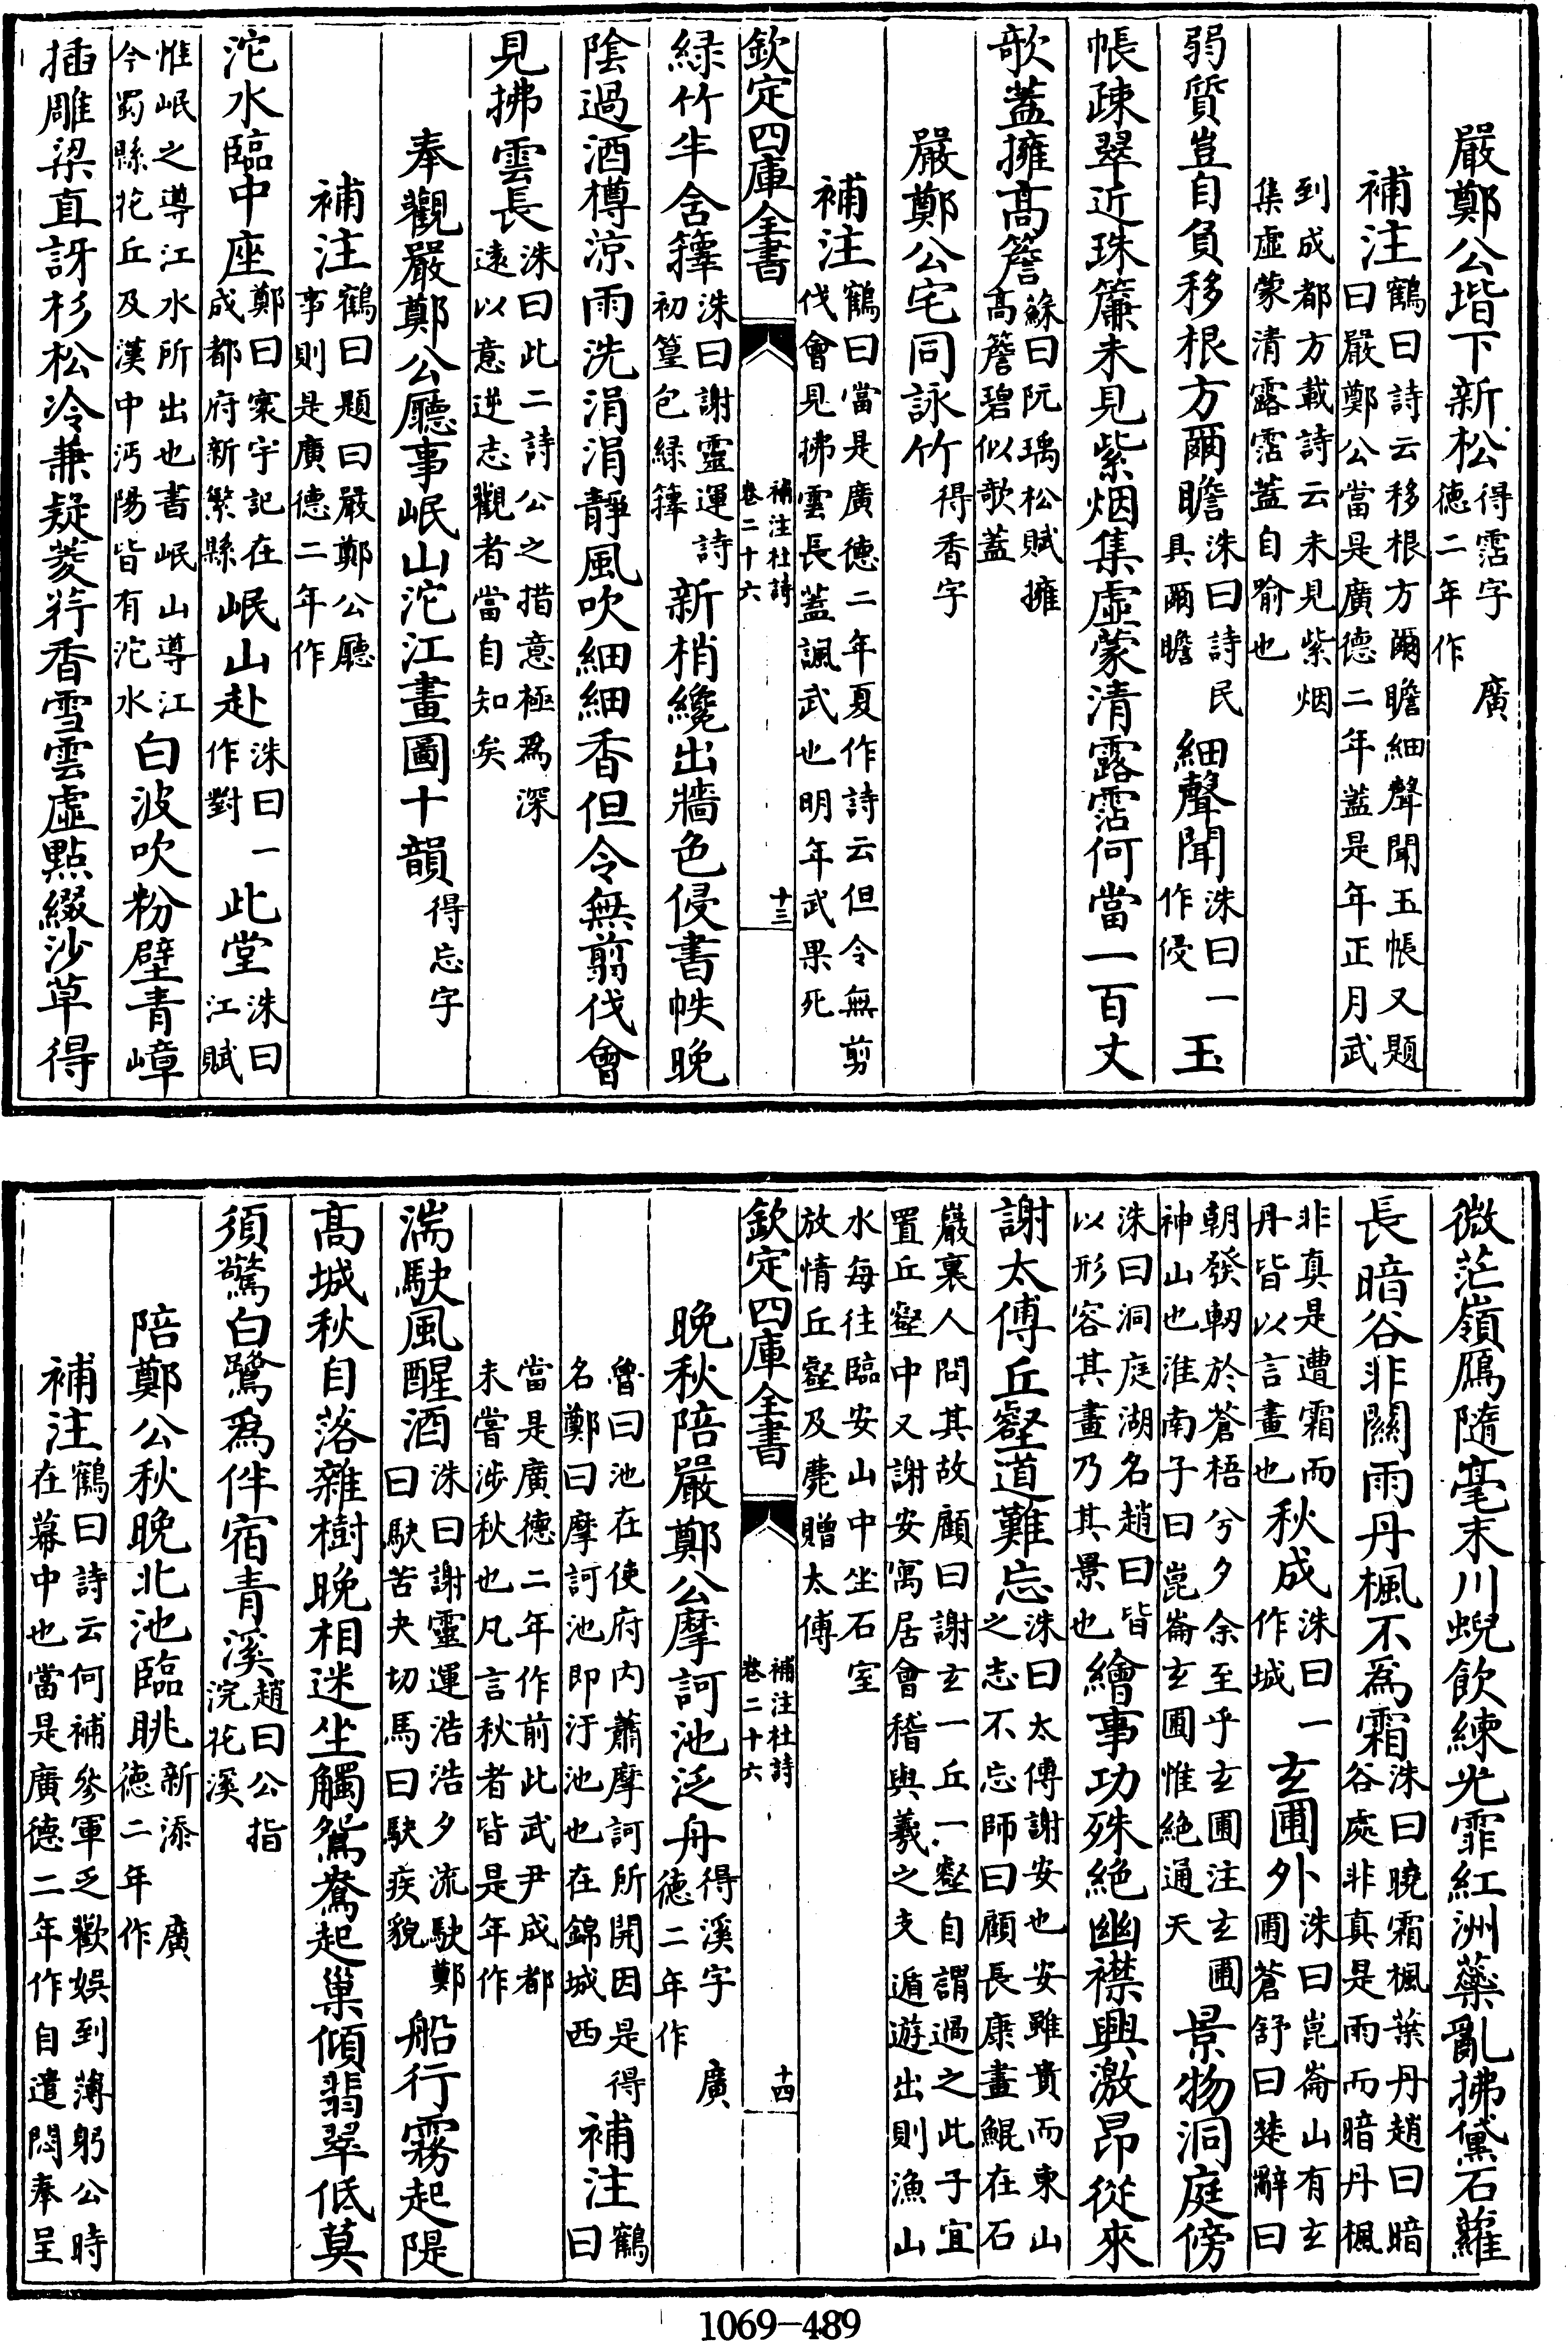 嚴鄭公堦下新松得霑字廣德二年作
補注鶴曰詩云移根方爾瞻細聲聞玉帳又題曰嚴鄭公當是廣德二年蓋是年正月武
到成都方載詩云未見紫烟集虛蒙清露霑蓋自喻也
弱質豈自負移根方爾瞻洙曰詩民具爾瞻細聲聞洙曰一作侵玉
帳疎翠近珠簾未見紫烟集虛蒙清露霑何當一百丈
欹蓋擁高簷蘇曰阮瑀松賦擁高簷碧似欹蓋
嚴鄭公宅同詠竹得香字
補注鶴曰當是廣德二年夏作詩云但令無剪伐會見拂雲長蓋諷武也明年武果死
欽定四庫全書 補注杜詩卷二十六 十三
緑竹半含籜洙曰謝靈運詩初篁包緑籜新梢纔出牆色侵書帙晚
陰過酒樽涼雨洗涓涓靜風吹細細香但令無翦伐會
見拂雲長洙曰此二詩公之措意極爲深遠以意逆志觀者當自知矣
奉觀嚴鄭公廳事岷山沱江畫圖十韻得忘字
補注鶴曰題曰嚴鄭公廳事則是廣德二年作
沱水臨中座鄭曰寰宇記在成都府新繁縣岷山赴洙曰一作對此堂洙曰江賦
惟岷之導江水所出也書岷山導江今蜀縣花丘及漢中沔陽皆有沱水白波吹粉壁青嶂
插雕梁直訝杉松冷兼疑菱荇香雪雲虛點綴沙草得
微茫嶺鴈隨毫末川蜺飲練光霏紅洲蘂亂拂黛石蘿
長暗谷非關雨丹楓不爲霜洙曰曉霜楓葉丹趙曰暗谷處非真是雨而暗丹楓
非真是遭霜而丹皆以言畫也秋成洙曰一作城玄圃外洙曰崑崙山有玄圃蒼舒曰楚辭曰
朝發軔於蒼梧兮夕余至乎玄圃注玄圃神山也淮南子曰崑崙玄圃惟絶通天景物洞庭傍
洙曰洞庭湖名趙曰皆以形容其畫乃其景也繪事功殊絶幽襟興激昂從來
謝太傅丘壑道難忘洙曰太傅謝安也安雖貴而東山之志不忘師曰顧長康畫鯤在石
巖裏人問其故顧曰謝玄一丘一壑自謂過之此子宜置丘壑中又謝安寓居會稽與羲之支遁遊出則漁山
水每往臨安山中坐石室放情丘壑及薨贈太傅
欽定四庫全書 補注杜詩卷二十六 十四
晚秋陪嚴鄭公摩訶池泛舟得溪字廣德二年作
魯曰池在使府内蕭摩訶所開因是得名鄭曰摩訶池即汙池也在錦城西補注鶴曰
當是廣德二年作前此武尹成都未嘗涉秋也凡言秋者皆是年作
湍駛風醒酒洙曰謝靈運浩浩夕流駛鄭曰駛苦夬切馬曰駛疾貌船行霧起隄
高城秋自落雜樹晚相迷坐觸鴛鴦起巢傾翡翠低莫
須驚白鷺爲伴宿青溪趙曰公指浣花溪
陪鄭公秋晚北池臨眺新添廣德二年作
補注鶴曰詩云何補參軍乏歡娛到薄躬公時在幕中也當是廣德二年作自遣悶奉呈
1069-489